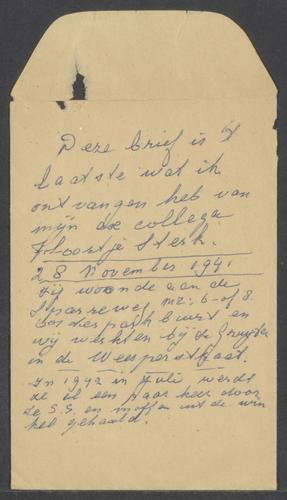 Deze brief is 't
laatste wat ik
ontvangen heb van
mijn collega
Floortje Sterk.
28 November 1941
Zij woonde aan de
Sparreweg nr: 6 of 8.
Oosterparkbuurt en
wij werkten bij de Gruyter
in de Weesperstraat.
In 1942 in Juli werdt
ze al een paar keer door
de S.S. en moffen uit de win
kel gehaald.